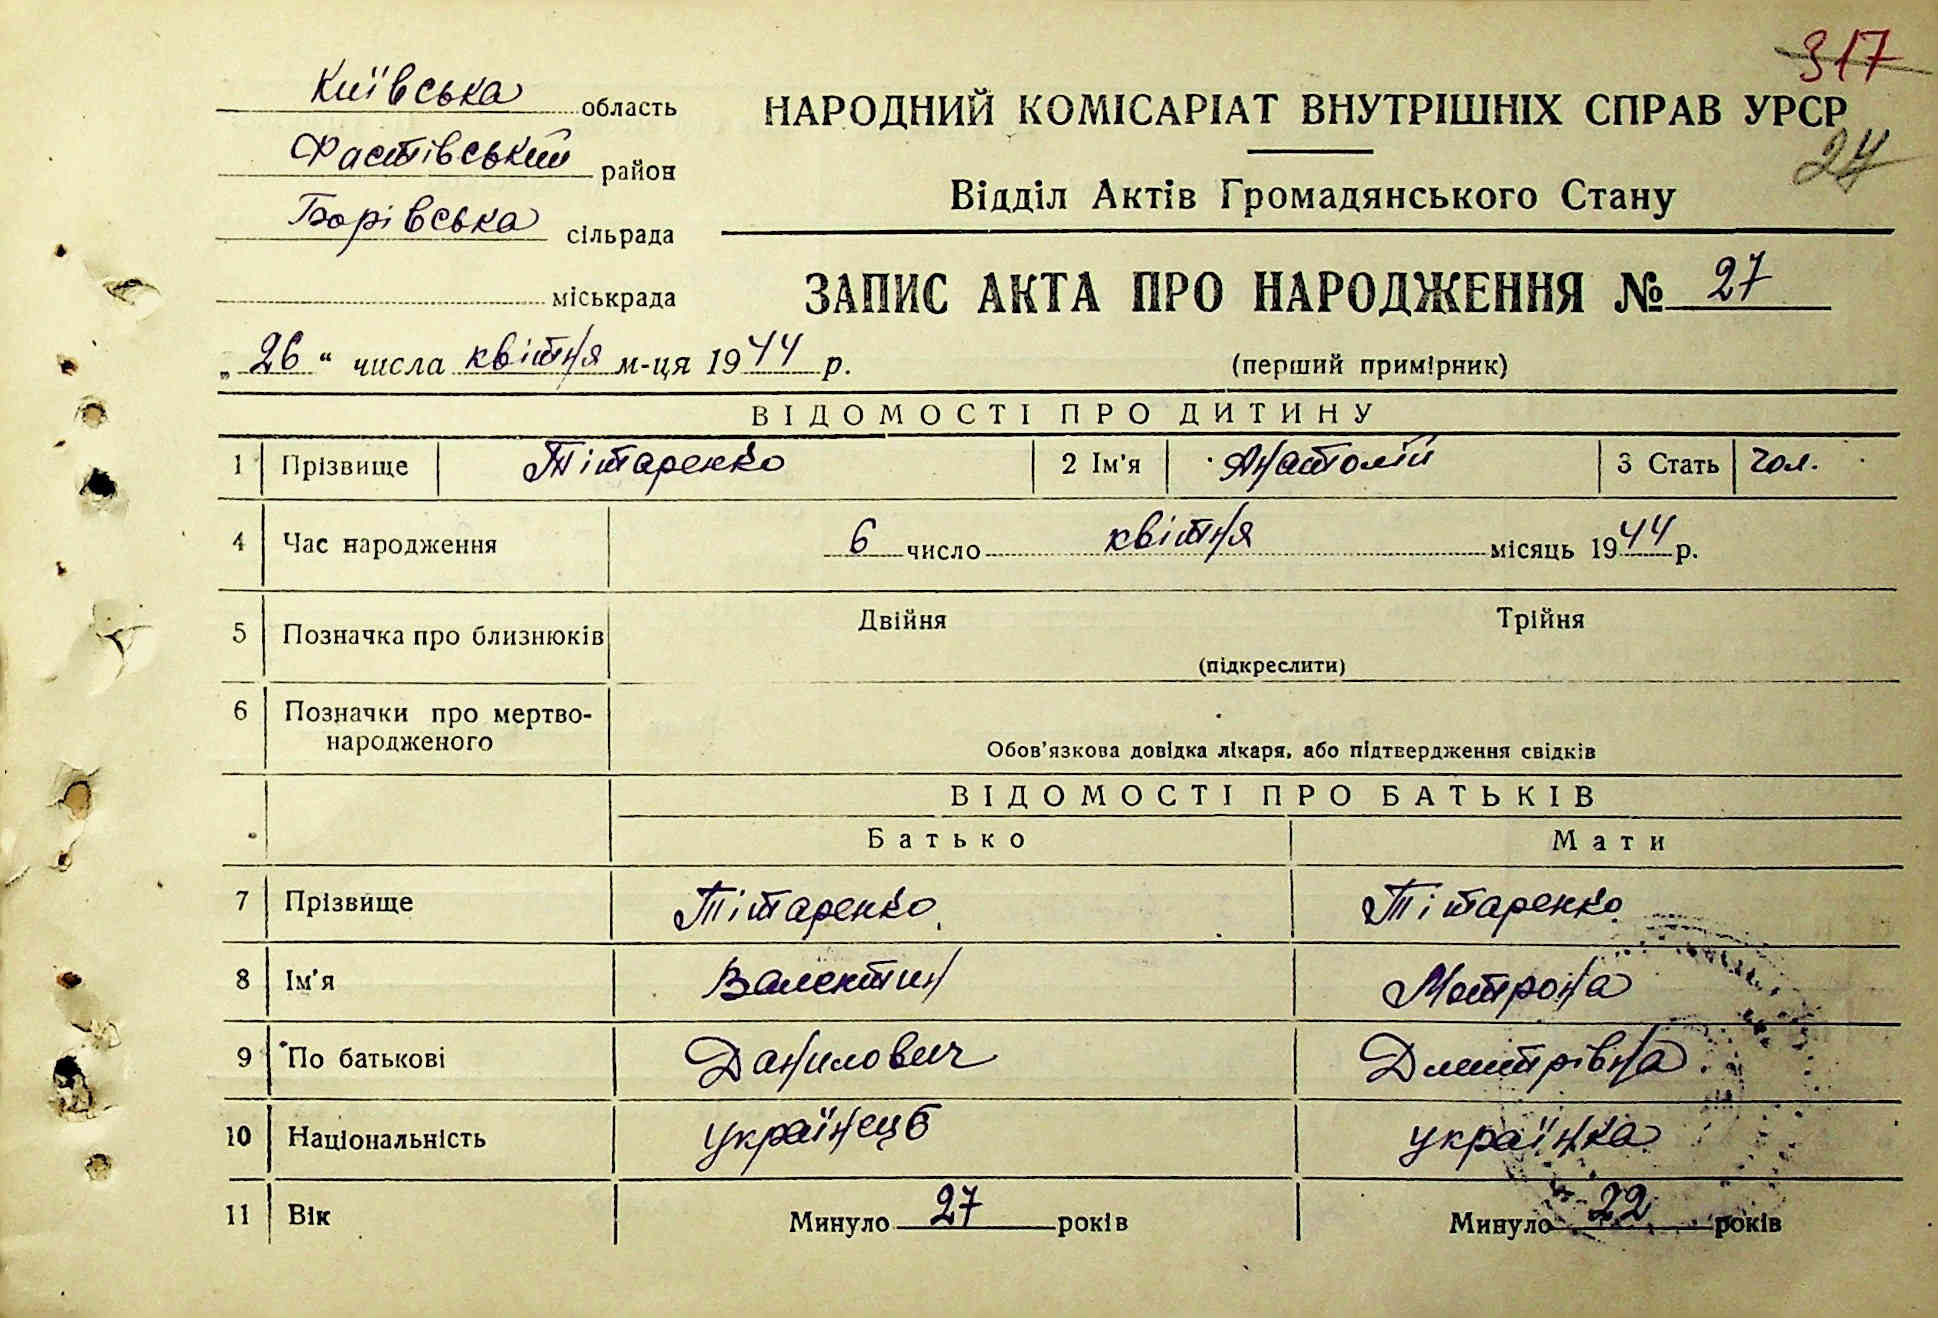 317
Київська область
НАРОДНИЙ КОМІСАРІАТ ВНУТРІШНІХ СПРАВ УРСР
Фастівський район
27
Відділ Актів Громадянського Стану
Борівська сільрада
міськрада
ЗАПИС АКТА ПРО НАРОДЖЕННЯ № 27
„26“ числа квітня м-ця 1944 р.
(перший примірник)
ВІДОМОСТІ ПРО ДИТИНУ
1 Прізвище Тітаренко 2 Ім'я Анатолій 3 Стать чол.
4 Час народження 6 число квітня місяць 1944 р.
5 Позначка про близнюків Двійня Трійня
(підкреслити)
6 Позначки про мертво-
народженого
Обов'язкова довідка лікаря, або підтвердження свідків
ВІДОМОСТІ ПРО БАТЬКІВ
Батько Мати
7 Прізвище Тітаренко Тітаренко
8 Ім'я Валентин Мотрона
9 По батькові Данилович Дмитрівна
10 Національність українець українка
11 Вік Минуло 27 років Минуло 22 років